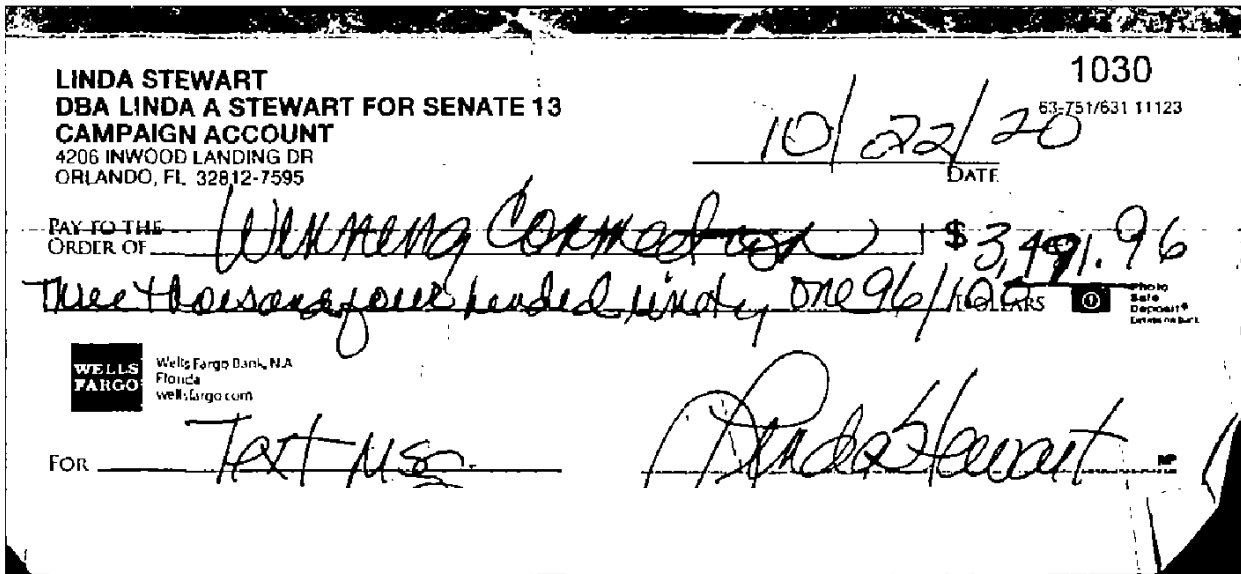 LINDA STEWART
DBA LINDA A STEWART FOR SENATE 13
CAMPAIGN ACCOUNT
4206 INWOOD LANDING DR
ORLANDO, FL 32812-7595
1030
63-751/631 11123
10/22/20
DATE
PAY TO THE
ORDER OF
Winning Connection
$ 3,491.96
Three thousand four hunded ninety one 96/100 DOLLARS
Photo
Safe
Deposit®
WELLS
FARGO
Wells Fargo Bank, N.A.
Florida
wellsfargo.com
FOR Text Msg.
Linda Stewart
MP